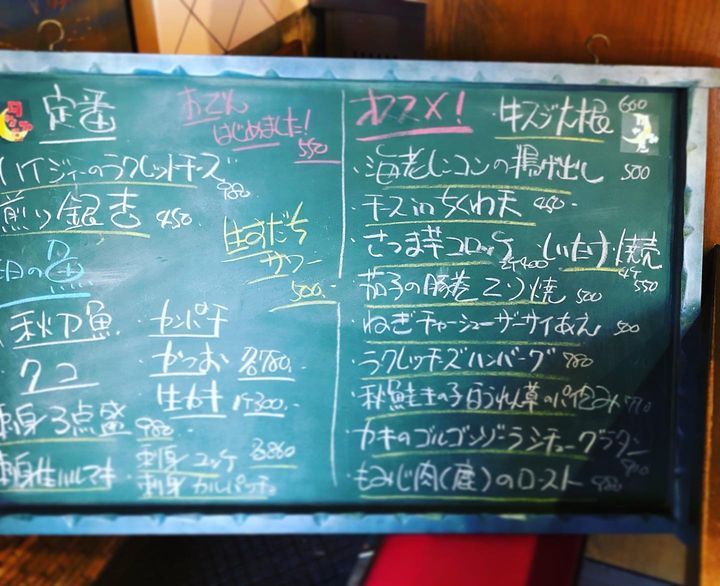 定番
おでん
はじめました!
550
ハイジーのラクレットチーズ
980
煎り銀杏 450
生すだち
サワー
500
本日の魚
秋刀魚 カンパチ
タコ かつお 各780
生ガキ 1ケ300
刺身3点盛 980
刺身生ハルマキ 刺身ユッケ 各860
刺身カルパッチョ
オススメ! 牛スジ大根 600
・海老レンコンの揚げ出し 500
・チーズinちくわ天 450
・さつま芋コロッケ 2ケ400 しいたけ焼売 4ケ 550
・茄子の豚巻 ピリ焼 500
・ねぎチャーシューザーサイあえ 500
・ラクレットチーズハンバーグ 980
・秋鮭きの子ほうれん草のパイ包み
・カキのゴルゴンゾーラシチューグラタン
・もみじ肉(鹿)のロースト 980